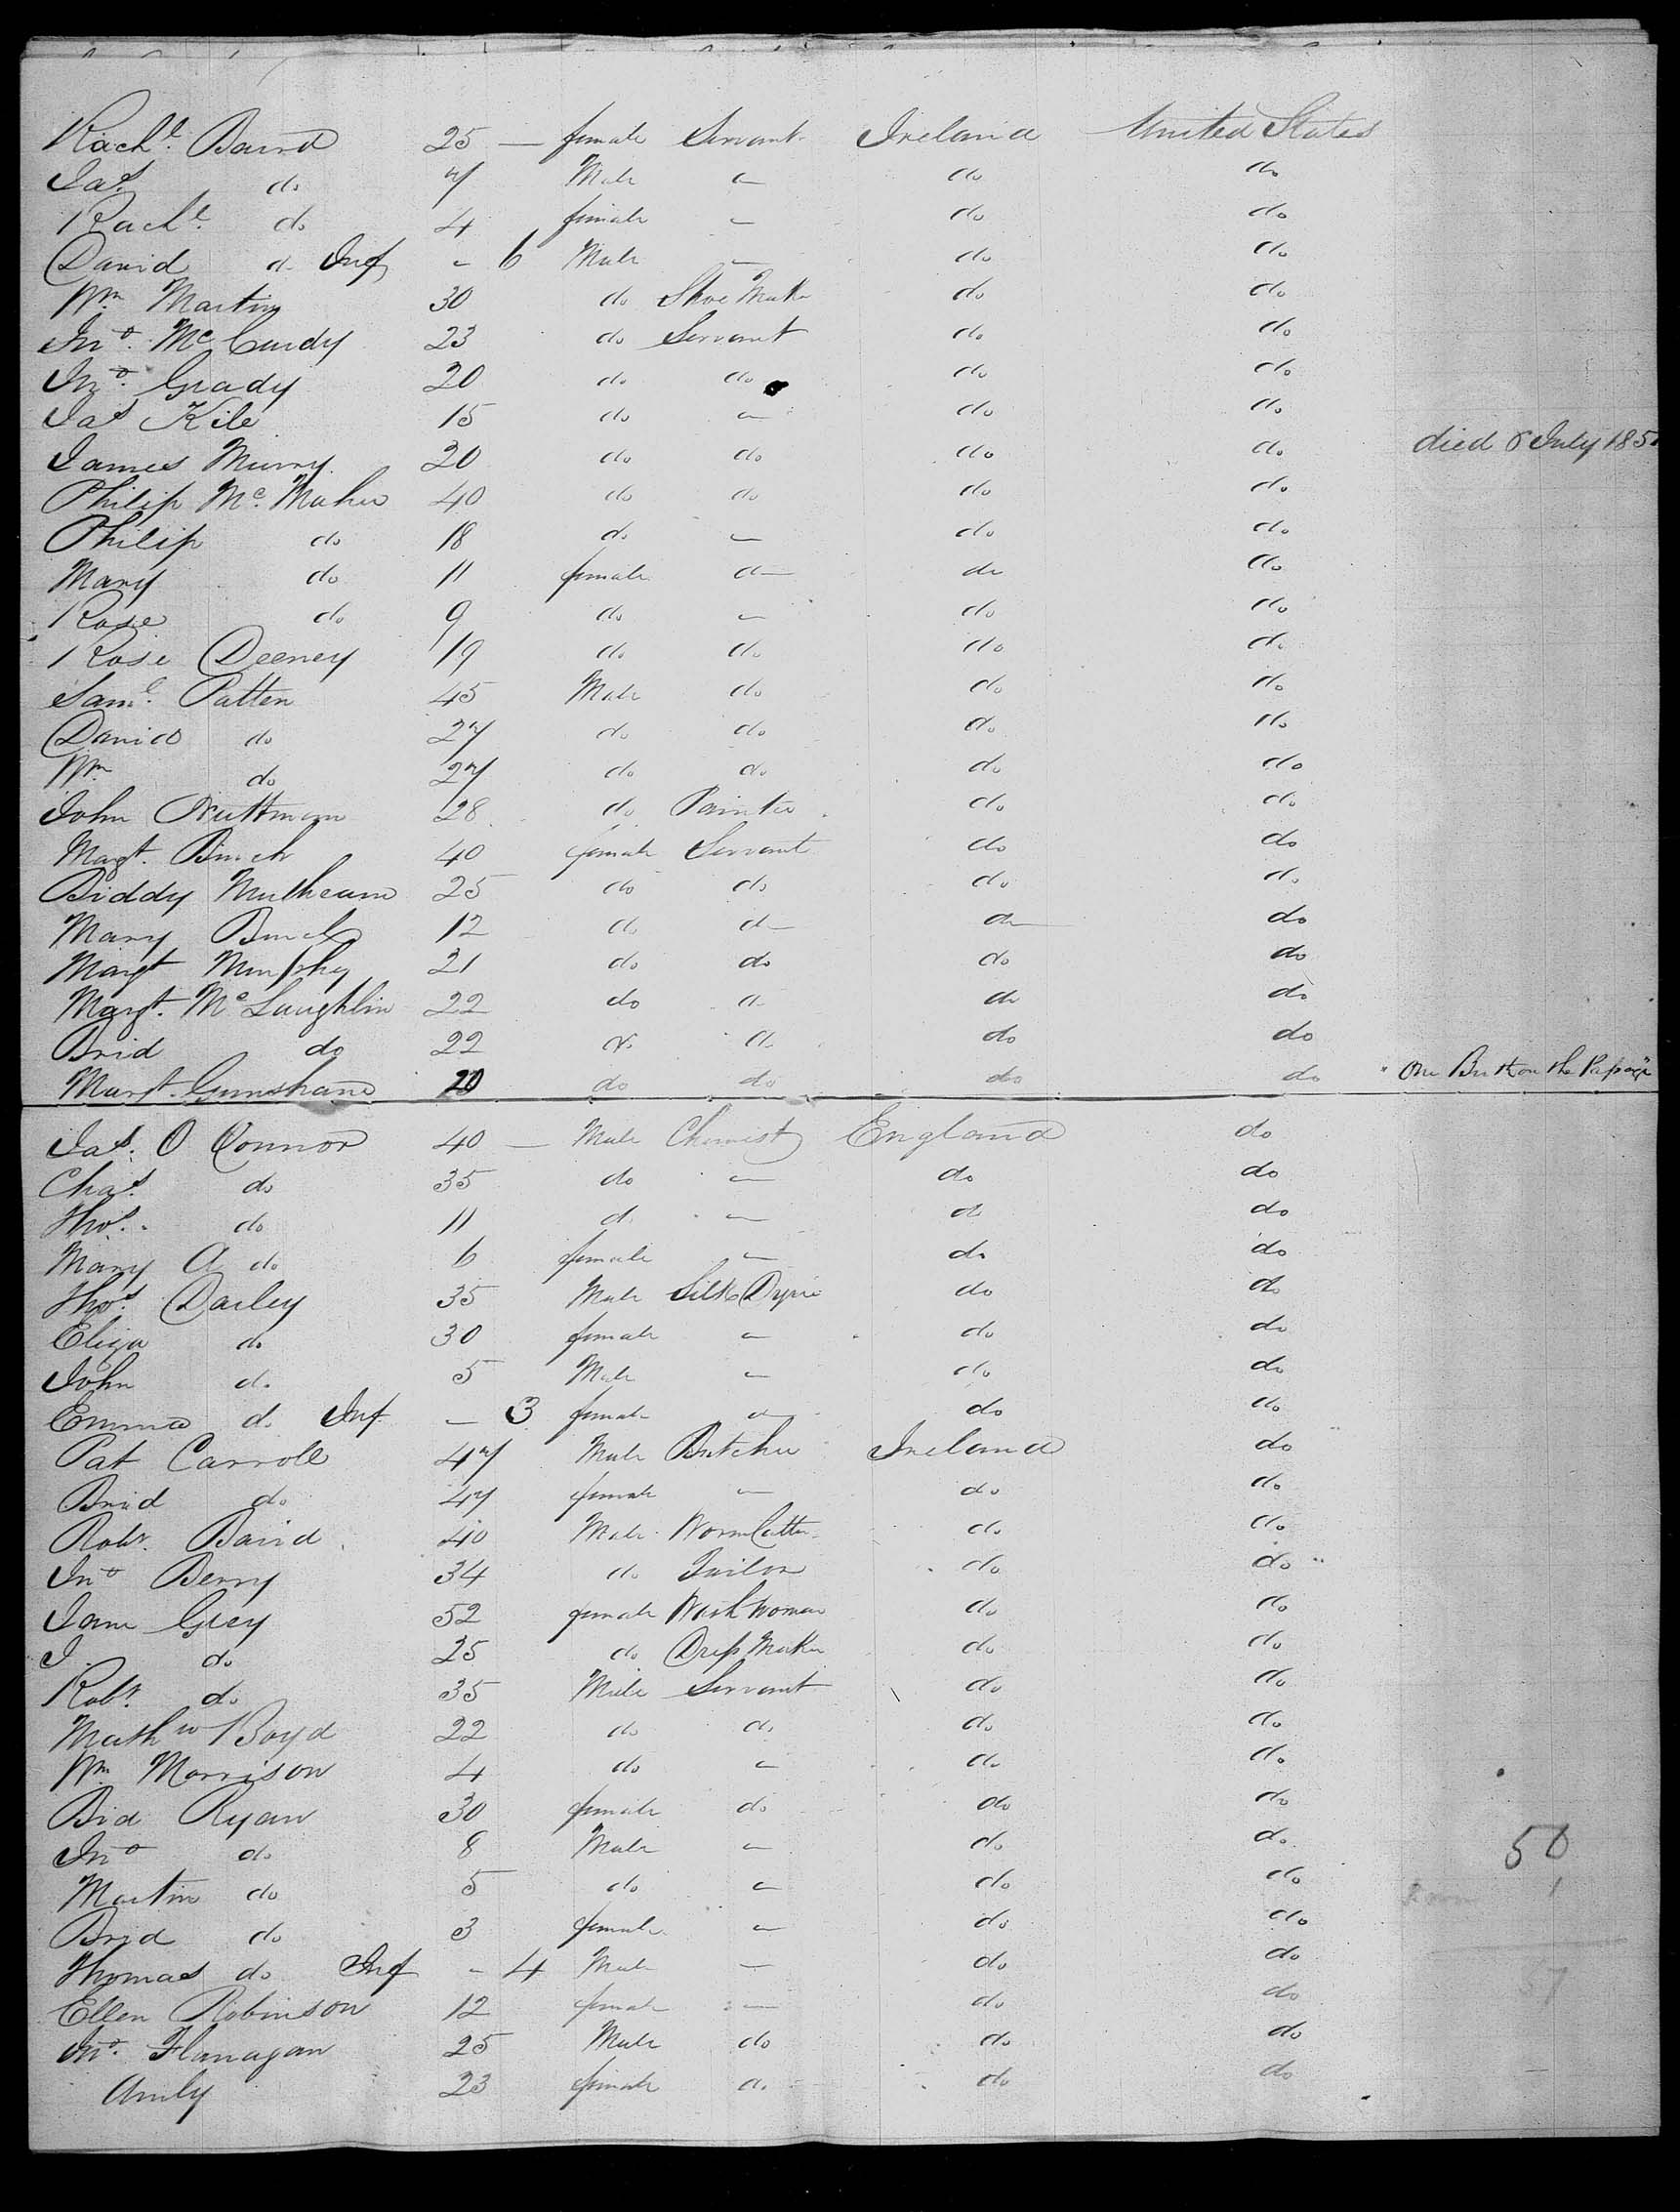 Rachl. Baird 25 — female Servant Ireland United States
Jas. do 7 Male — do do
Rachl. do 4 female — do do
David do Inf — 6 Male — do do
Wm Martin 30 do Shoe Maker do do
Jno. Mc Curdy 23 do Servant do do
Jno. Grady 20 do do do do
Jas Kile 15 do — do do
James Murry 20 do do do do died 8 July 185
Philip Mc. Maher 40 do do do do
Philip do 18 do — do do
Mary do 11 female do do do
Rose do 9 do — do do
Rose Deeney 19 do do do do
Saml. Patten 45 Male do do do
David do 27 do do do do
Wm do 27 do do do do
John 28 do Painter do do
Magt. Burch 40 female Servant do do
Biddy Mulhearn 25 do do do do
Mary Burch 12 do do do do
Margt Murphy 21 do do do do
Margt. Mc Laughlin 22 do do do do
Brid do 22 do do do do
Margt. Gunshan 20 do do do do " One Birth on the Passage "
Jas. O Connor 40 — Male Chemist England do
Chas. do 35 do — do do
Thos. do 11 do — do do
Mary A do 6 female — do do
Thos. Darley 35 Male Silk Dyer do do
Eliza do 30 female — do do
John do 5 Male — do do
Emma do Inf — 3 female — do do
Pat Carroll 47 Male Butcher Ireland do
Brid do 47 female — do do
Robt. Baird 40 Male do do
Jno Berry 34 do Tailor do do
Jane Grey 52 female Wash Woman do do
J. do 25 do Dress Maker do do
Robt. do 35 Male Servant do do
Mathw Boyd 22 do do do do
Wm Morrison 4 do — do do
Bid Ryan 30 female do do do
Jno do 8 Male — do do
56
Martin do 5 do — do do
1
Brid do 3 female — do do
Thomas do Inf — 4 Male — do do
57
Ellen Robinson 12 female — do do
Jno. Flanagan 25 Male do do do
Amly 23 female do do do